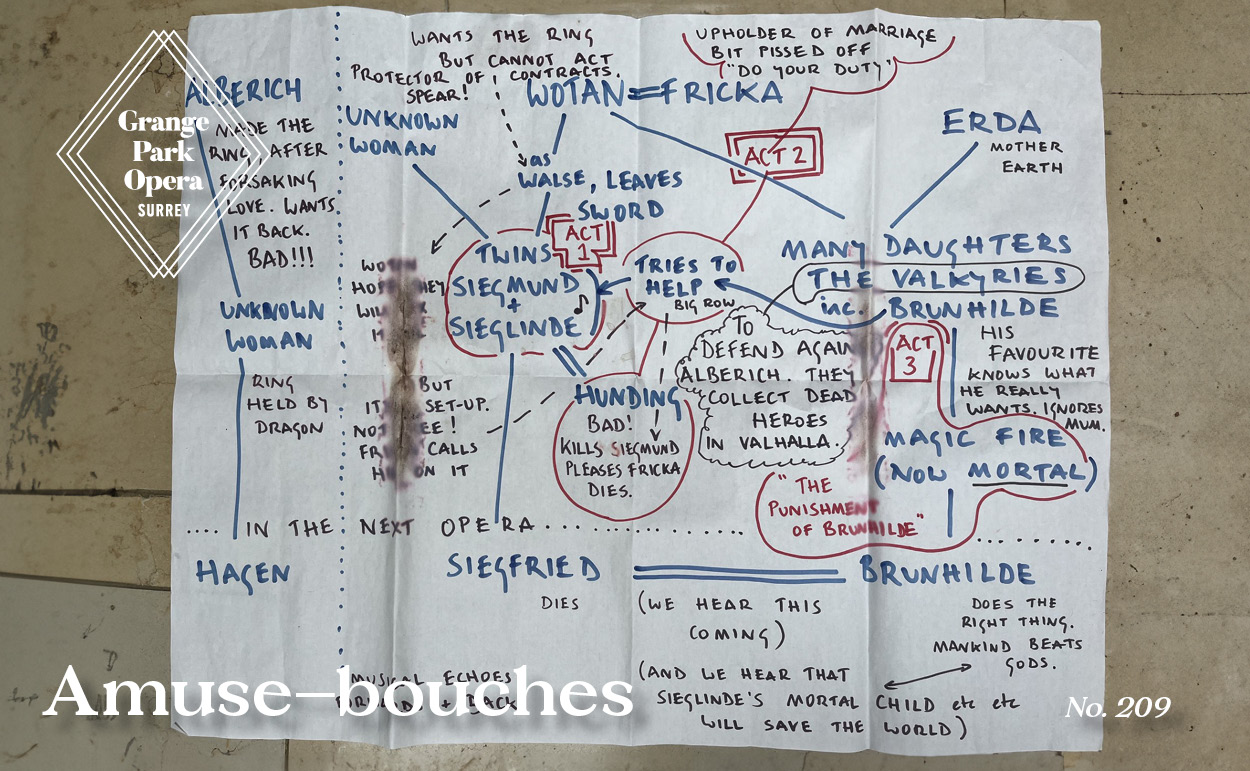 Grange
Park
Opera
SURREY
ALBERICH
MADE THE
RING, AFTER
FORSAKING
LOVE. WANTS
IT BACK.
BAD!!!
UNKNOWN
WOMAN
RING
HELD BY
DRAGON
HAGEN
WANTS THE RING
BUT CANNOT ACT
PROTECTOR OF CONTRACTS.
SPEAR!
WOTAN = FRICKA
UPHOLDER OF MARRIAGE
BIT PISSED OFF
"DO YOUR DUTY"
UNKNOWN
WOMAN
as
WALSE, LEAVES
SWORD
ACT 2
ERDA
MOTHER
EARTH
TWINS
SIEGMUND
+
SIEGLINDE
ACT
1
TRIES TO
HELP
BIG ROW
MANY DAUGHTERS
THE VALKYRIES
inc. BRUNHILDE
TO
DEFEND AGAIN
ALBERICH. THEY
COLLECT DEAD
HEROES
IN VALHALLA.
ACT
3
HIS
FAVOURITE
KNOWS WHAT
HE REALLY
WANTS. IGNORES
MUM.
BUT
SET-UP.
CALLS
ON IT
HUNDING
BAD!
KILLS SIEGMUND
PLEASES FRICKA
DIES.
MAGIC FIRE
(NOW MORTAL)
"THE
PUNISHMENT
OF BRUNHILDE"
.... IN THE NEXT OPERA ....
SIEGFRIED
DIES
BRUNHILDE
(WE HEAR THIS
COMING)
DOES THE
RIGHT THING.
MANKIND BEATS
GODS.
(AND WE HEAR THAT
SIEGLINDE'S MORTAL CHILD etc etc
WILL SAVE THE WORLD)
MUSICAL ECHOES
BACK
Amuse–bouches
No. 209